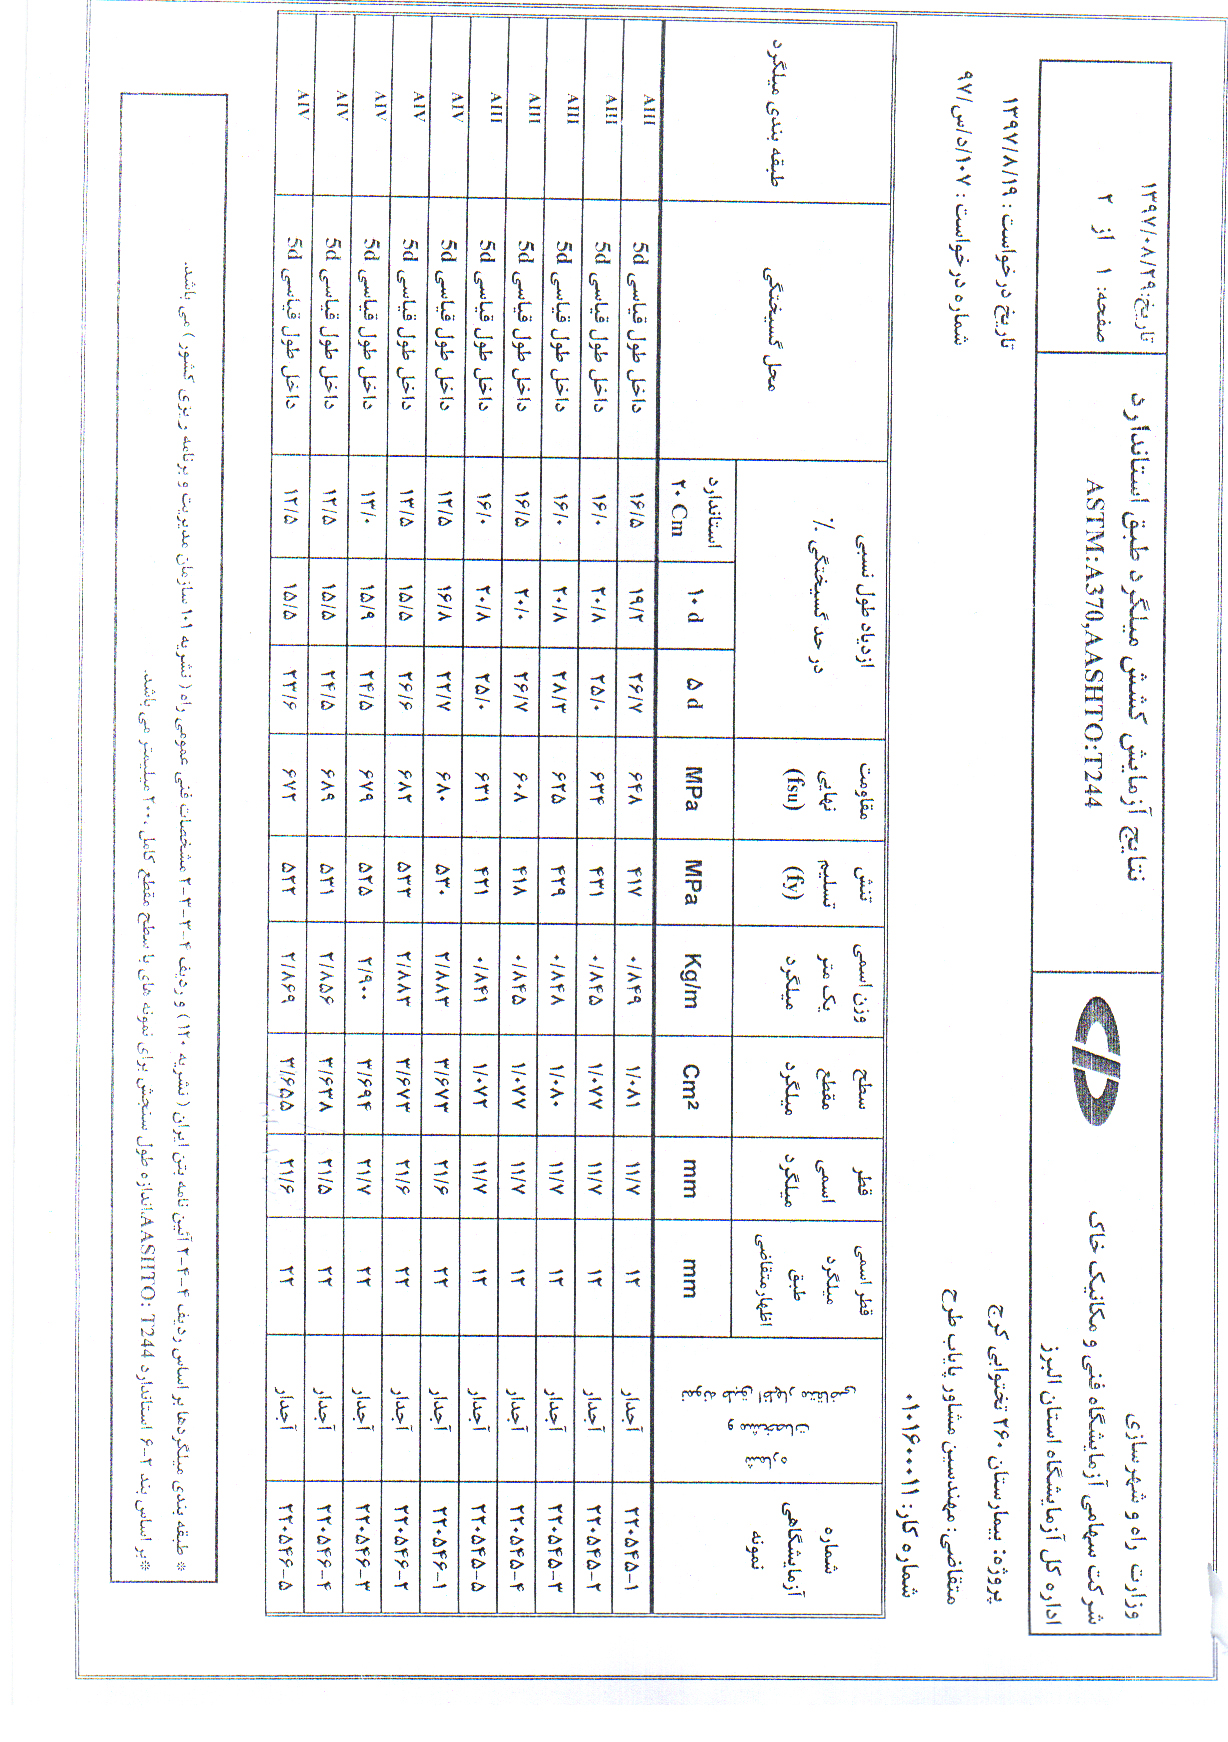 وزارت راه و شهرسازی
شرکت سهامی آزمایشگاه فنی و مکانیک خاک
اداره کل آزمایشگاه استان البرز
نتایج آزمایش کشش میلگرد طبق استاندارد
ASTM:A370,AASHTO:T244
تاریخ:۱۳۹۷/۰۸/۲۹
صفحه: ۱ از ۲
پروژه: بیمارستان ۲۶۰ تختوابی کرج
تاریخ درخواست : ۱۳۹۷/۸/۱۹
متقاضی: مهندسین مشاور پایاب طرح
شماره درخواست : ۱۰۷/د/س/۹۷
شماره کار: ۰۱۰۱۶۰۰۰۱۱
شماره آزمایشگاهی نمونه
شماره و مشخصات نمونه طبق اظهار متقاضی
قطر اسمی میلگرد طبق اظهار متقاضی mm
قطر اسمی میلگرد mm
سطح مقطع میلگرد Cm²
وزن اسمی یک متر میلگرد Kg/m
تنش تسلیم (fy) MPa
مقاومت نهایی (fsu) MPa
ازدیاد طول نسبی در حد گسیختگی ٪
۵ d
۱۰ d
استاندارد ۲۰ Cm
محل گسیختگی
طبقه بندی میلگرد
۲۲۰۵۴۵-۱ آجدار ۱۲ ۱۱/۷ ۱/۰۸۱ ۰/۸۴۹ ۴۱۷ ۶۴۸ ۲۶/۷ ۱۹/۲ ۱۶/۵ داخل طول قیاسی 5d AIII
۲۲۰۵۴۵-۲ آجدار ۱۲ ۱۱/۷ ۱/۰۷۷ ۰/۸۴۵ ۴۳۱ ۶۳۴ ۲۵/۰ ۲۰/۸ ۱۶/۰ داخل طول قیاسی 5d AIII
۲۲۰۵۴۵-۳ آجدار ۱۲ ۱۱/۷ ۱/۰۸۰ ۰/۸۴۸ ۴۲۹ ۶۲۵ ۲۸/۳ ۲۰/۸ ۱۶/۰ داخل طول قیاسی 5d AIII
۲۲۰۵۴۵-۴ آجدار ۱۲ ۱۱/۷ ۱/۰۷۷ ۰/۸۴۵ ۴۱۸ ۶۰۸ ۲۶/۷ ۲۰/۰ ۱۶/۵ داخل طول قیاسی 5d AIII
۲۲۰۵۴۵-۵ آجدار ۱۲ ۱۱/۷ ۱/۰۷۲ ۰/۸۴۱ ۴۲۱ ۶۳۱ ۲۵/۰ ۲۰/۸ ۱۶/۰ داخل طول قیاسی 5d AIII
۲۲۰۵۴۶-۱ آجدار ۲۲ ۲۱/۶ ۳/۶۷۳ ۲/۸۸۳ ۵۳۰ ۶۸۰ ۲۲/۷ ۱۶/۸ ۱۲/۵ داخل طول قیاسی 5d AIV
۲۲۰۵۴۶-۲ آجدار ۲۲ ۲۱/۶ ۳/۶۷۳ ۲/۸۸۳ ۵۳۳ ۶۸۲ ۲۶/۶ ۱۵/۵ ۱۳/۵ داخل طول قیاسی 5d AIV
۲۲۰۵۴۶-۳ آجدار ۲۲ ۲۱/۷ ۳/۶۹۴ ۲/۹۰۰ ۵۲۵ ۶۷۹ ۲۴/۵ ۱۵/۹ ۱۳/۰ داخل طول قیاسی 5d AIV
۲۲۰۵۴۶-۴ آجدار ۲۲ ۲۱/۵ ۳/۶۳۸ ۲/۸۵۶ ۵۳۱ ۶۸۹ ۲۴/۵ ۱۵/۵ ۱۲/۵ داخل طول قیاسی 5d AIV
۲۲۰۵۴۶-۵ آجدار ۲۲ ۲۱/۶ ۳/۶۵۵ ۲/۸۶۹ ۵۲۲ ۶۷۲ ۲۳/۶ ۱۵/۵ ۱۲/۵ داخل طول قیاسی 5d AIV
* طبقه بندی میلگردها بر اساس ردیف ۴-۴-۲ آئین نامه بتن ایران ( نشریه ۱۲۰ ) و ردیف ۴-۳-۳-۲ مشخصات فنی عمومی راه ( نشریه ۱۰۱ سازمان مدیریت و برنامه ریزی کشور ) می باشد.
*بر اساس بند ۲-۶ استاندارد AASHTO: T244،اندازه طول سنجش برای نمونه های با سطح مقطع کامل ۲۰۰ میلیمتر می باشد.